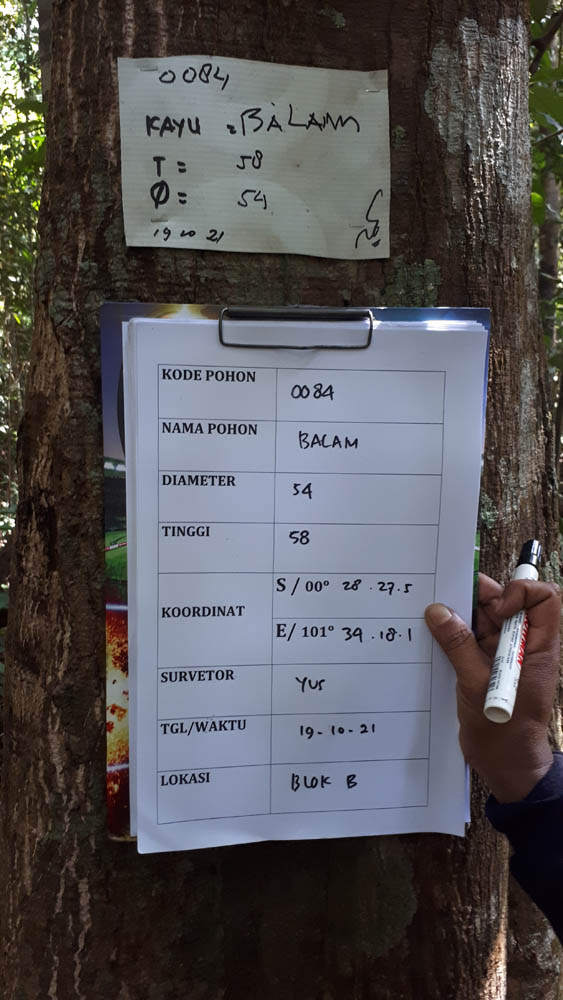 0084
KAYU = BALAM
T = 58
Ø = 54
19 10 21
KODE POHON 0084
NAMA POHON BALAM
DIAMETER 54
TINGGI 58
KOORDINAT S / 00° 28 . 27.5
E/ 101° 34 . 18.1
SURVETOR YUS
TGL/WAKTU 19-10-21
LOKASI BLOK B